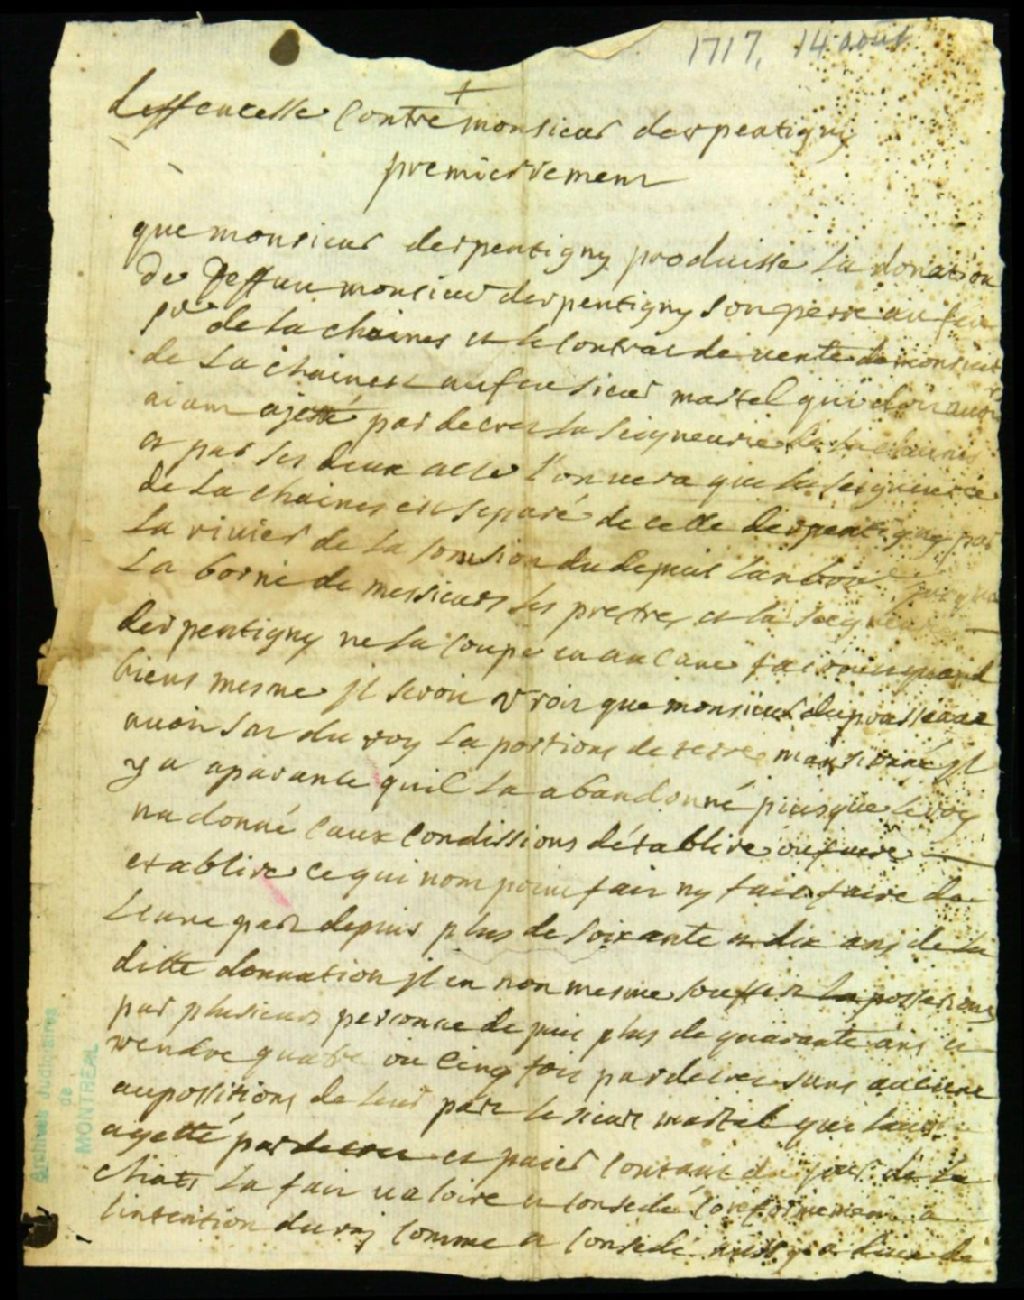 1717, 14 août
+
deffencesse contre monsieur derpentigny
premierement
que monsieur derpentigny produisse la donation
de deffun monsieur derpentigny son perre au feu
sr de la chaines et le contrac de vente de monsieur
de la chainest au feu sieur martel qui
aian ajetté par decres la seigneurie de la chaines
et par ses deux acte l'on vera que la seigneurie
de la chaines est separé de celle derpentigny par
la rivier de la somsion du depuis jusqua
la borne de messieurs les prestres et la seigneurie
derpentigny ne la coupe en aucune quand
biens mesme jl seroit vrair que monsieur
avoir du roy la portions de terre jl
y a aparante quil la abandonné puisque le roy
na donné caux condissions détablire ou faire
establire ce qui nom poin fair ny fair faire de
leure par depuis plus de soixante et dix ans de la
ditte donnation jl en non mesme souffer la possessions
par plusieurs personne depuis plus de quarante ans et
vendre quatre ou cinq fois par decres sans aucune
aupossitions de leur par le sieur martel que laue
agetté par decres et paier contant du jour de la
chats la fair valoire et consedé conformemen a
lintention du roj comme a consedé de
Archives Judiciaires
de
MONTRÉAL